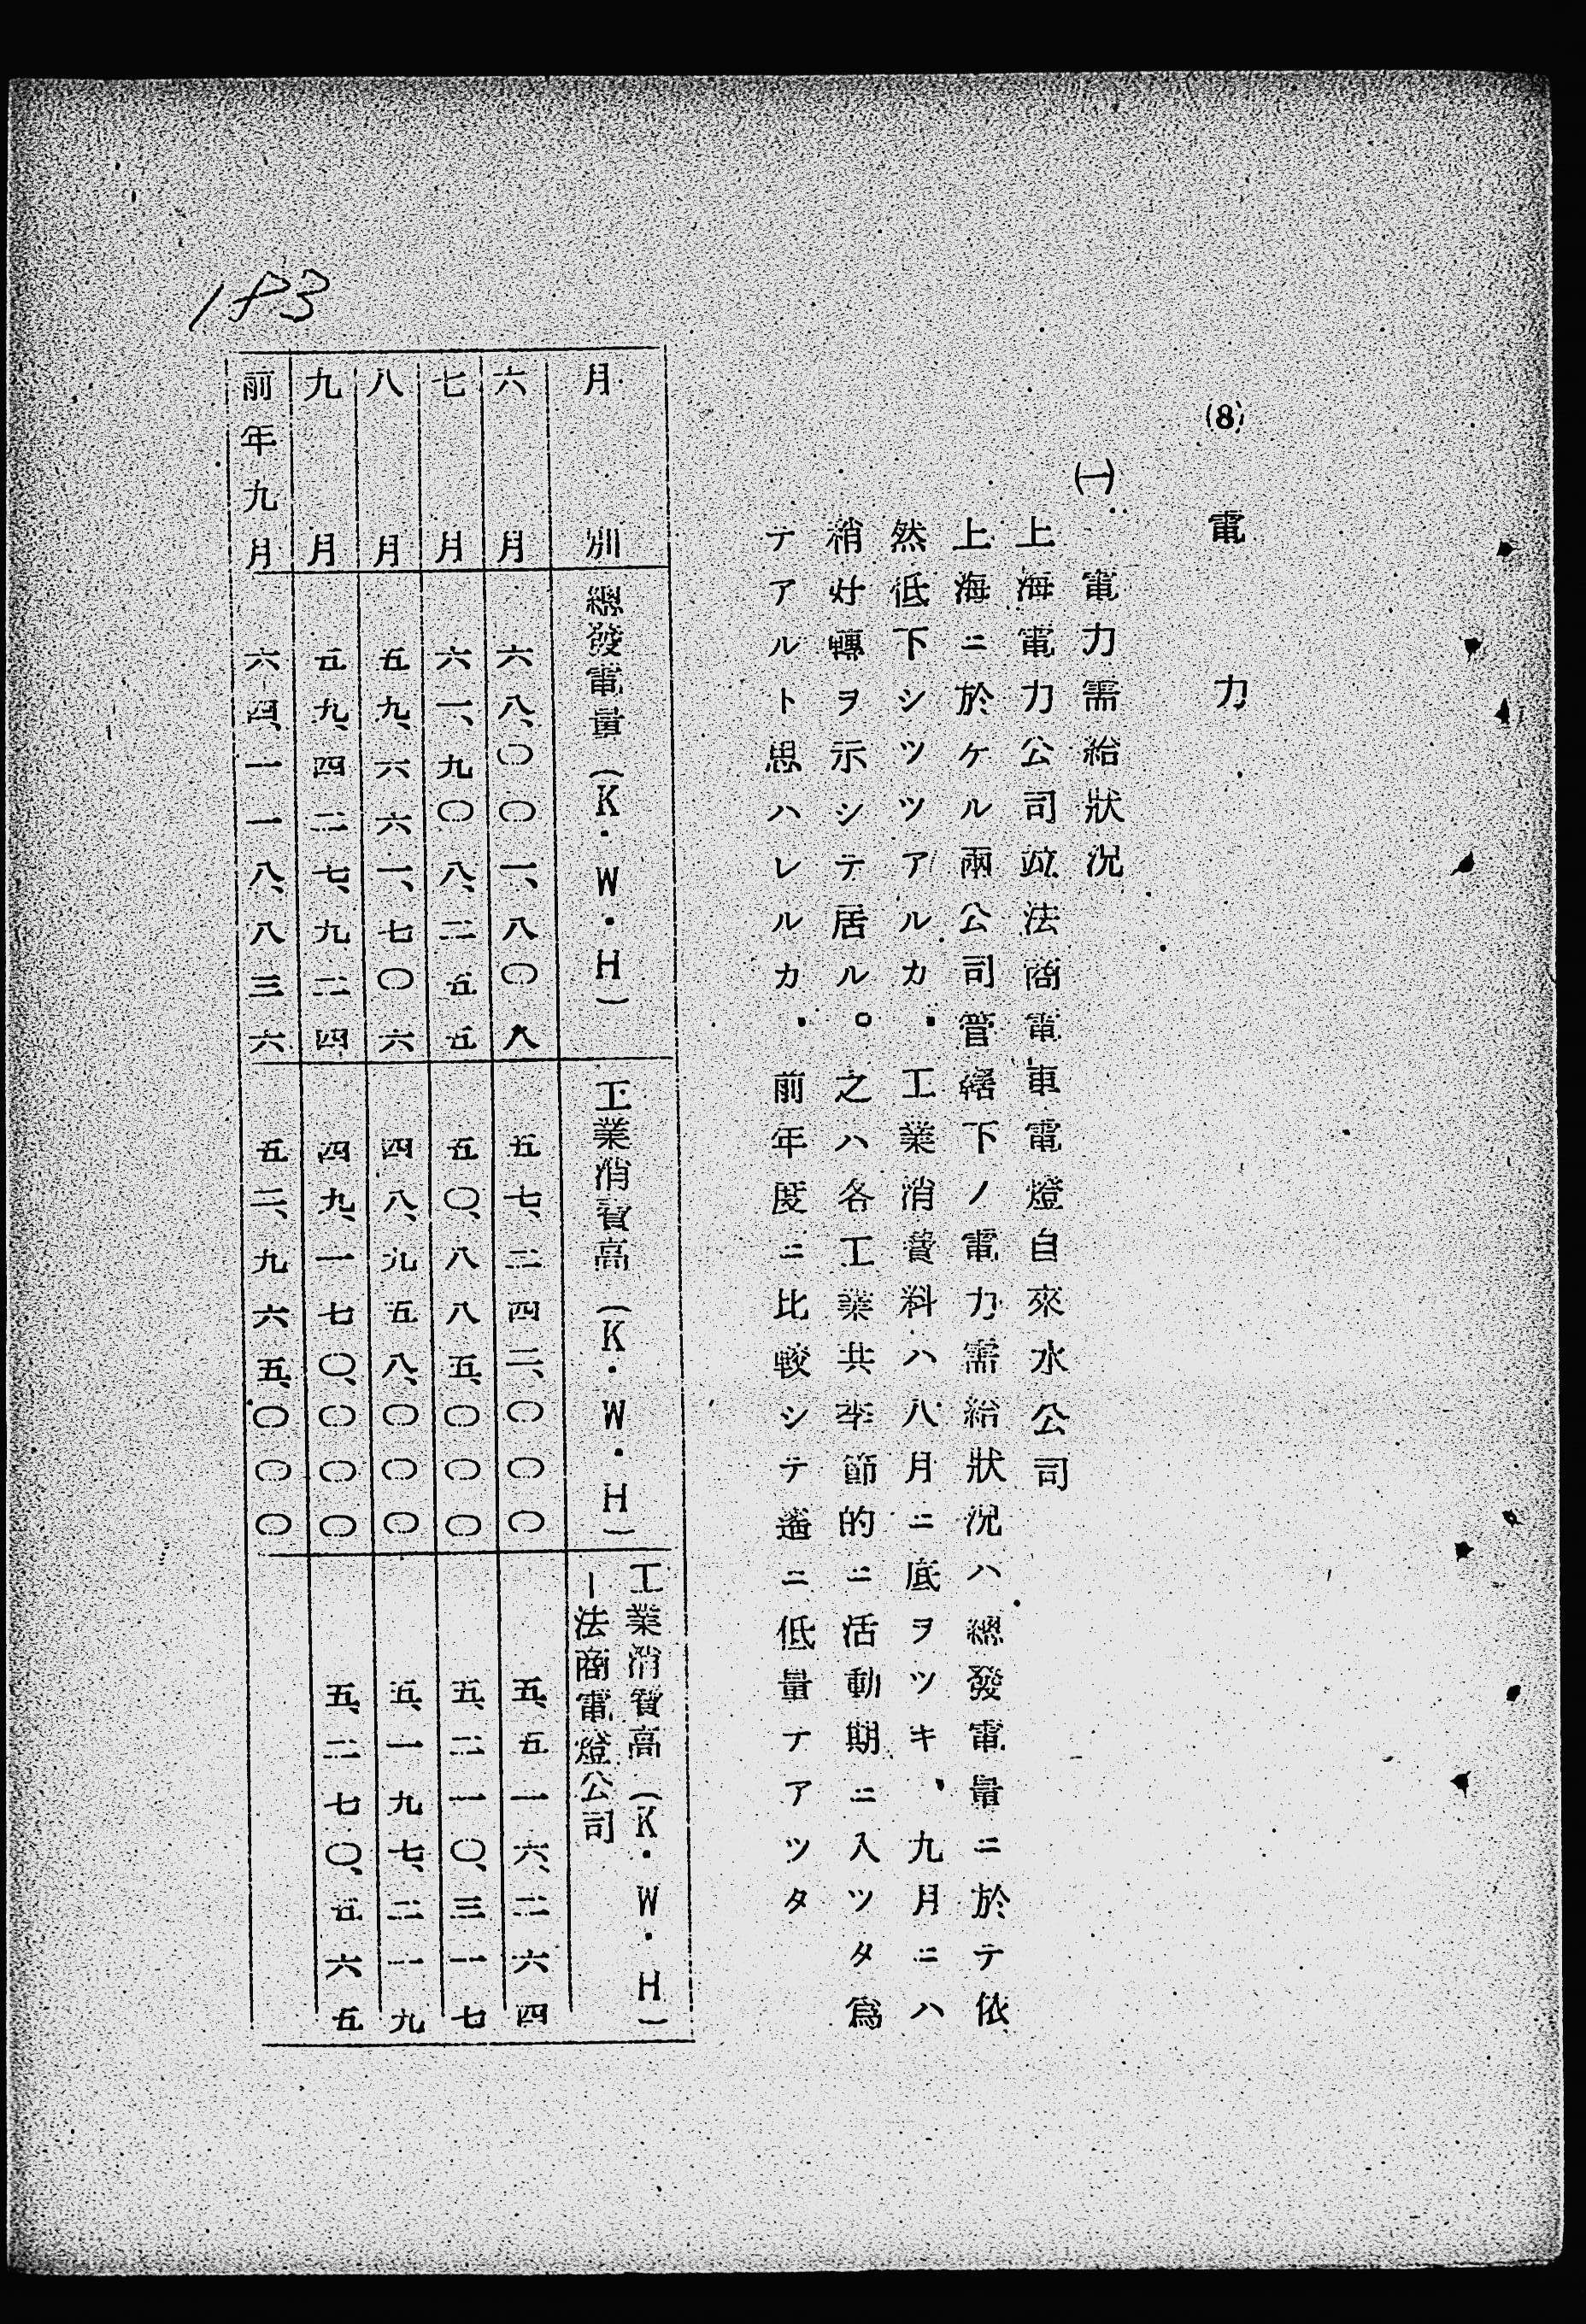 (8) 電力
(一) 電力需給狀況
上海電力公司竝法商電車電燈自來水公司
上海ニ於ケル兩公司管轄下ノ電力需給狀況ハ總發電量ニ於テ依
然低下シツツアルカ、工業消費料ハ八月ニ底ヲツキ、九月ニハ
稍好轉ヲ示シテ居ル。之ハ各工業共季節的ニ活動期ニ入ツタ爲
テアルト思ハレルカ、前年度ニ比較シテ遙ニ低量テアツタ
月別 總發電量(K・W・H) 工業消費高(K・W・H) 工業消費高(K・W・H)
ー法商電燈公司
六月 六八、〇〇一、八〇八 五七、三四二、〇〇〇 五、五一六、二六四
七月 六一、九〇八、二五五 五〇、八八五、〇〇〇 五、二一〇、三一七
八月 五九、六六一、七〇六 四八、九五八、〇〇〇 五、一九七、二一九
九月 五九、四二七、九二四 四九、一七〇、〇〇〇 五、二七〇、五六五
前年九月 六四、一一八、八三六 五二、九六五、〇〇〇
183